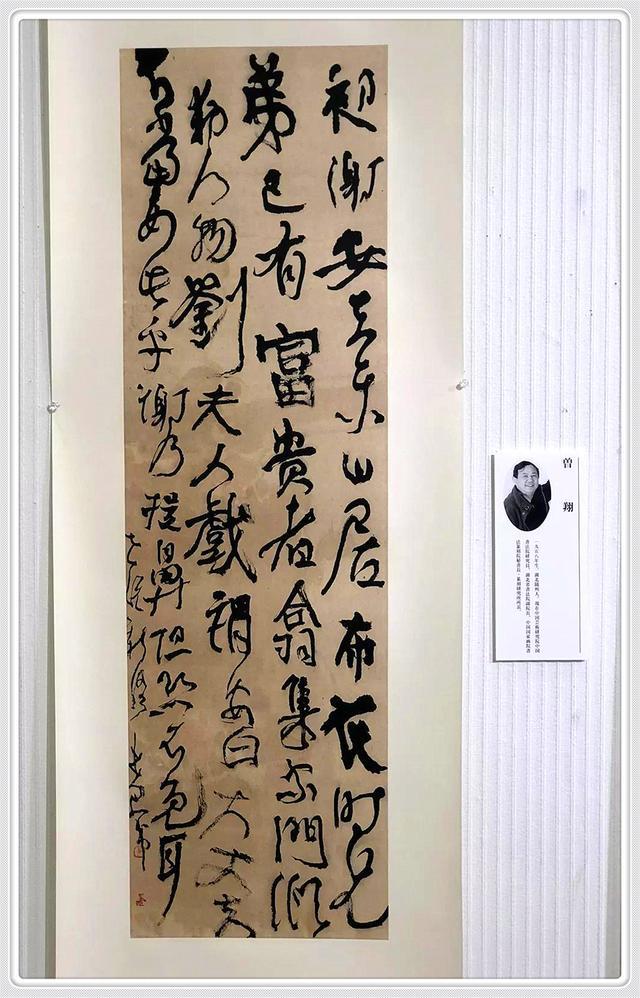 初謝安在東山居布衣時兄
弟已有富貴者翕集家門傾
動人物劉夫人戲謂安曰大丈夫
不當如此乎謝乃捉鼻但恐不免耳
世說新語
曾翔
一九五八年生，湖北随州人。现任中国艺术研究院中国
书法院研究员、湖北省书法院副院长、中国国家画院书
法篆刻院秘书长、篆刻研究所所长。